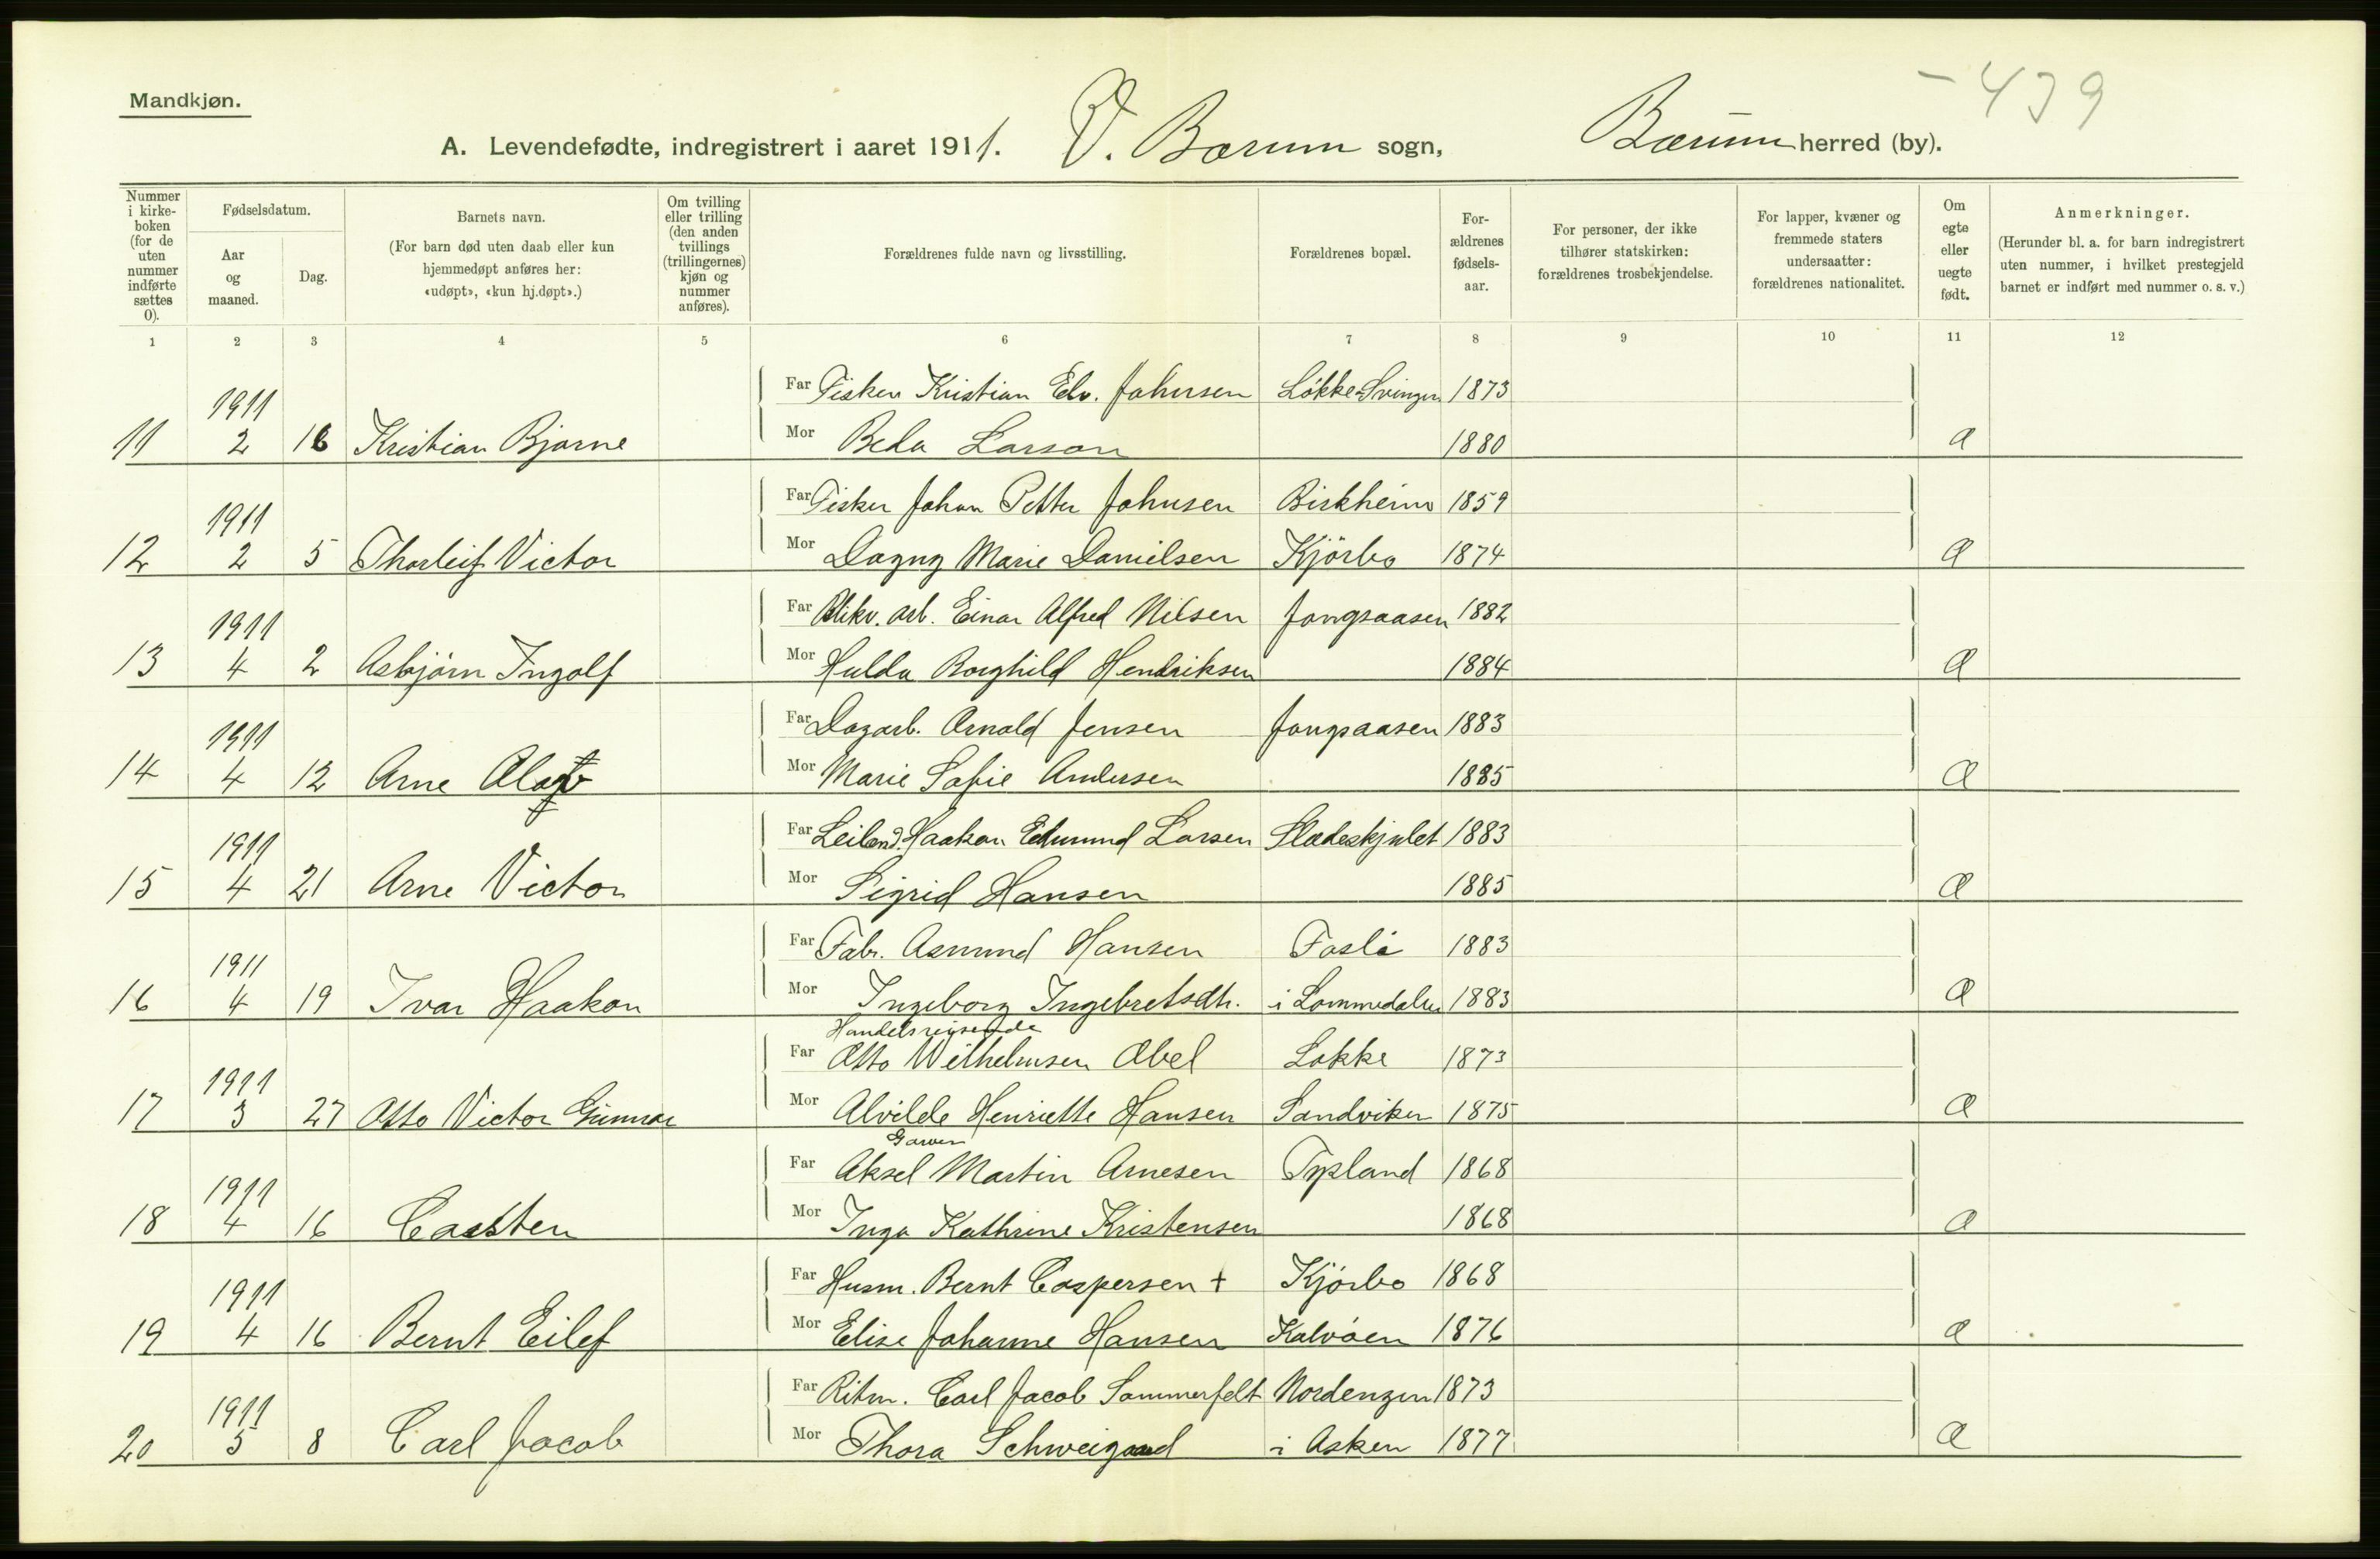 Mandkjøn.
- 439
A. Levendefødte, indregistrert i aaret 1911. V. Bærum sogn, Bærum herred (by).
Nummer i kirkeboken (for de uten nummer indførte sættes 0).
Fødselsdatum.
Aar og maaned.
Dag.
Barnets navn.
(For barn død uten daab eller kun hjemmedøpt anføres her: «udøpt», «kun hj.døpt».)
Om tvilling eller trilling (den anden tvillings (trillingernes) kjøn og nummer anføres).
Forældrenes fulde navn og livsstilling.
Forældrenes bopæl.
Forældrenes fødselsaar.
For personer, der ikke tilhører statskirken: forældrenes trosbekjendelse.
For lapper, kvæner og fremmede staters undersaatter: forældrenes nationalitet.
Om egte eller uegte født.
Anmerkninger.
(Herunder bl. a. for barn indregistrert uten nummer, i hvilket prestegjeld barnet er indført med nummer o. s. v.)
1 2 3 4 5 6 7 8 9 10 11 12
Far Fisker Kristian Edv. Johnsen Løkke Svingen 1873
1911
11 2 16 Kristian Bjarne Mor Beda Larson 1880 Æ
Far Fisker Johan Petter Johnsen Birkheim 1859
1911
12 2 5 Thorleif Victor Mor Dagny Marie Danielsen Kjörbo 1874 Æ
Far Blikv. arb. Einar Alfred Nilsen Jongsaasen 1882
1911
13 4 2 Asbjörn Ingolf Mor Hulda Borghild Hendriksen 1884 Æ
Far Dagarb. Arnold Jensen Jongsaasen 1883
1911
14 4 12 Arne Olaf Mor Marie Sofie Andersen 1885 Æ
Far Leilend. Haakon Edmund Larsen Slædeskjulet 1883
1911
15 4 21 Arne Victor Mor Sigrid Hansen 1885 Æ
Far Fabr. Asmund Hansen Fosli 1883
1911
16 4 19 Ivar Haakon Mor Ingeborg Ingebretsdtr. i Lommedalen 1883 Æ
Handelsreisende
Far Otto Wilhelmsen Abel Løkke 1873
1911
17 3 27 Otto Victor Gunnar Mor Alvilde Henriette Hansen Sandviken 1875 Æ
Garver
Far Aksel Martin Arnesen 1868
1911
18 4 16 Carsten Mor Inga Kathrine Kristensen 1868 Æ
Far Husm. Bernt Caspersen + Kjörbo 1868
1911
19 4 16 Bernt Eilef Mor Elise Johanne Hansen Kalvöen 1876 Æ
Far Ritm. Carl Jacob Sommerfelt Nordengen 1873
1911
20 5 8 Carl Jacob Mor Thora Schweigaard i Asker 1877 Æ